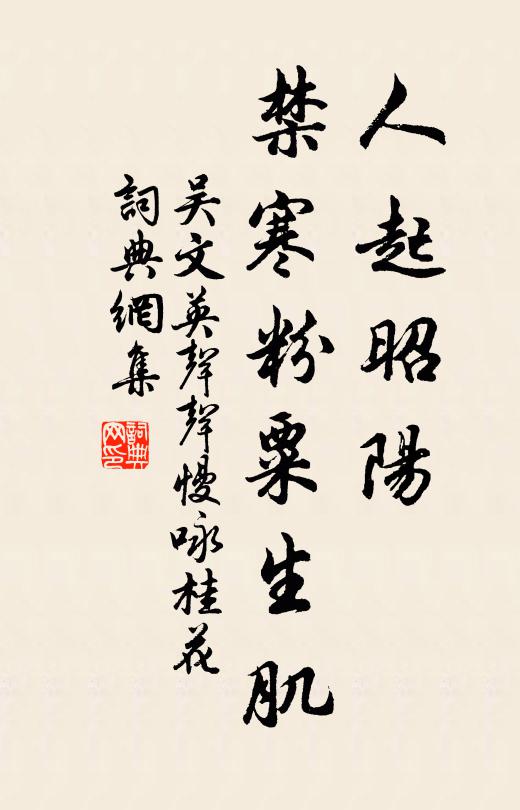 人起昭陽
禁寒粉粟生肌
吴文英聲聲慢咏桂花
詞典網集
詞典網印